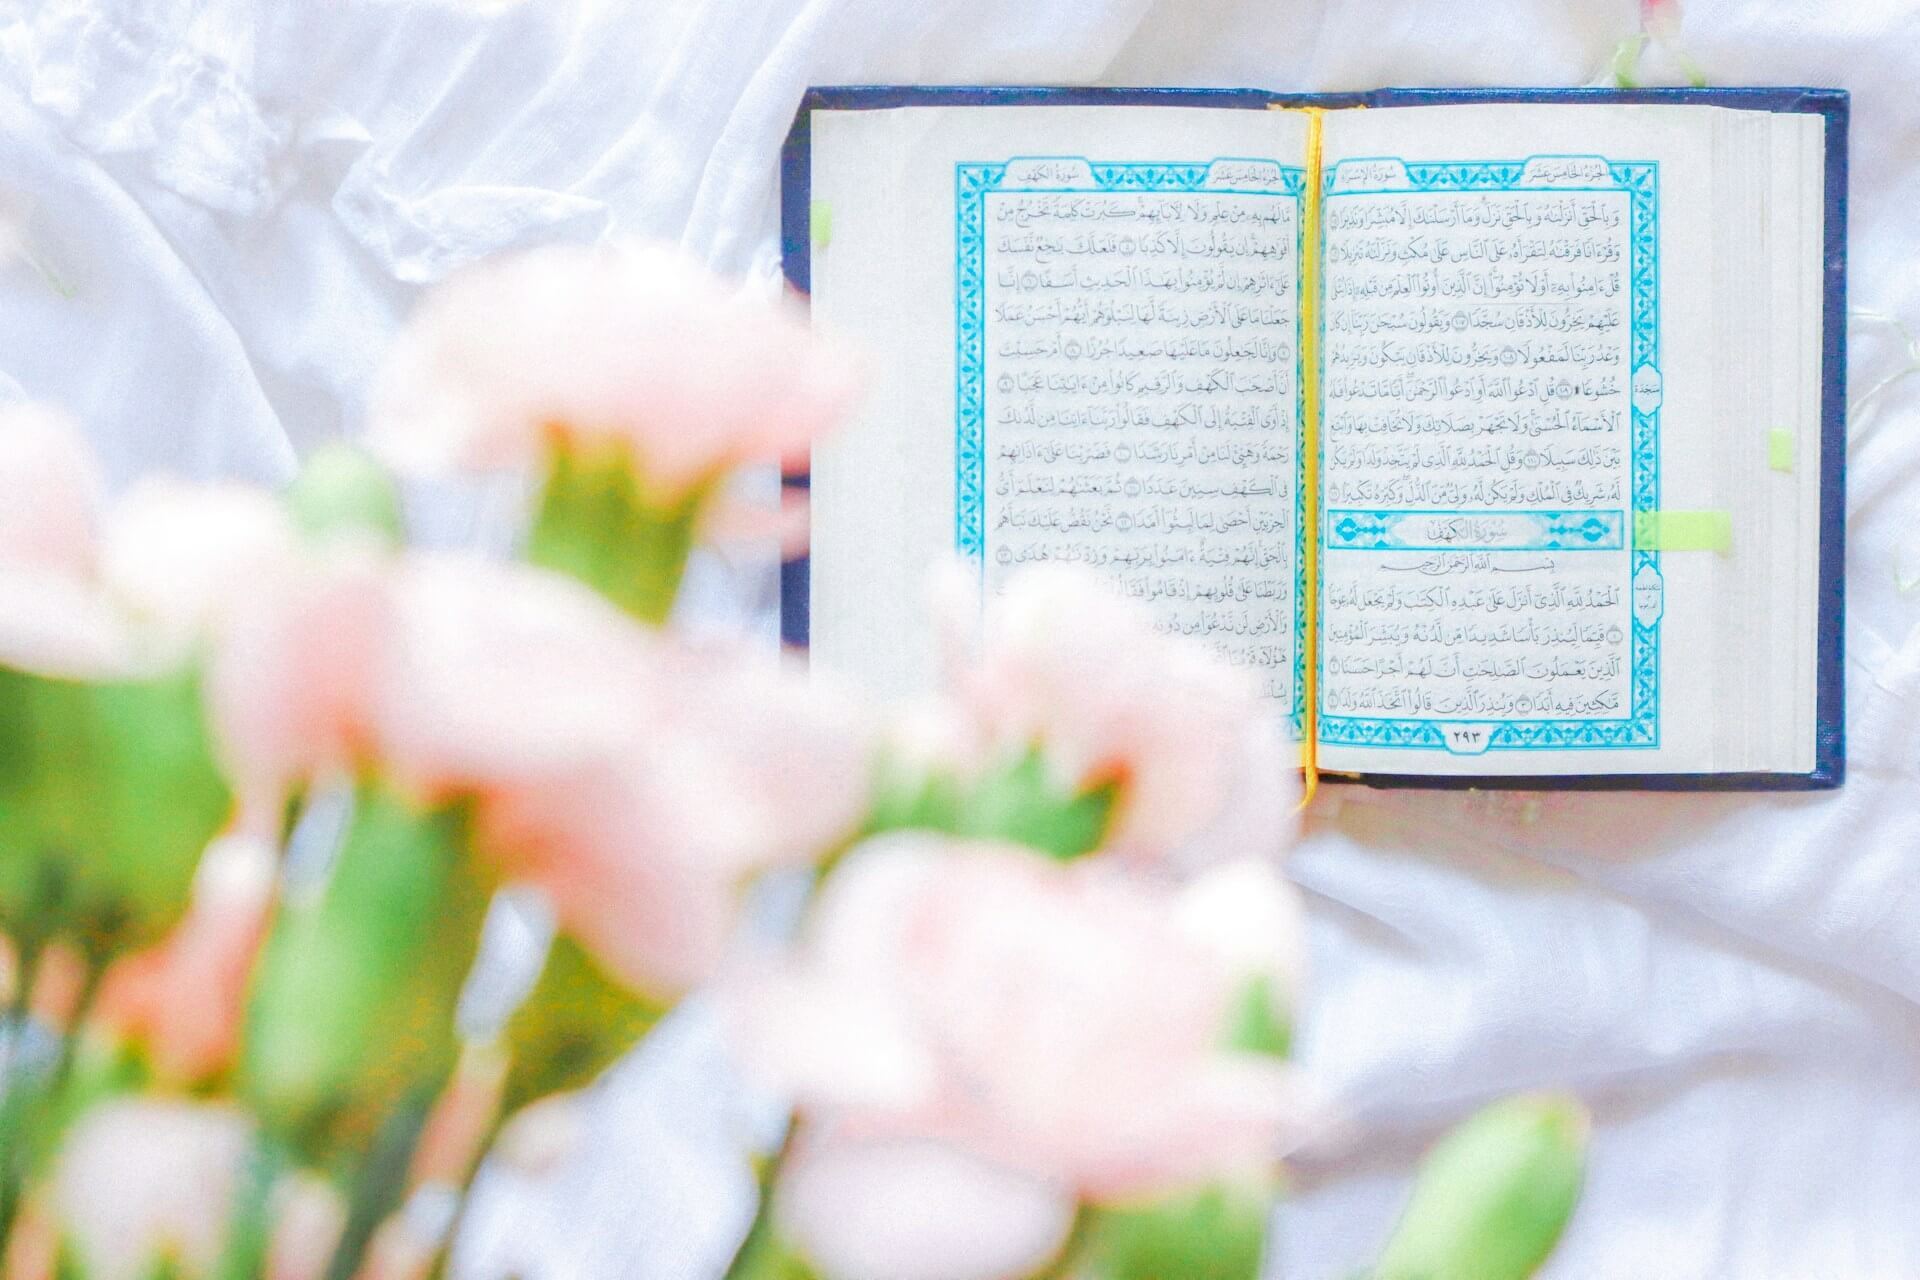 الجزء الخامس عشر
سورة الإسراء
وَبِالْحَقِّ أَنزَلْنَٰهُ وَبِالْحَقِّ نَزَلَ وَمَا أَرْسَلْنَٰكَ إِلَّا مُبَشِّرًا وَنَذِيرًا
وَقُرْءَانًا فَرَقْنَٰهُ لِتَقْرَأَهُ عَلَى النَّاسِ عَلَىٰ مُكْثٍ وَنَزَّلْنَٰهُ تَنزِيلًا
قُلْ ءَامِنُوا بِهِ أَوْ لَا تُؤْمِنُوا إِنَّ الَّذِينَ أُوتُوا الْعِلْمَ مِن قَبْلِهِ إِذَا يُتْلَىٰ
عَلَيْهِمْ يَخِرُّونَ لِلْأَذْقَانِ سُجَّدًا ١٠٧ وَيَقُولُونَ سُبْحَٰنَ رَبِّنَا إِن كَانَ
وَعْدُ رَبِّنَا لَمَفْعُولًا ١٠٨ وَيَخِرُّونَ لِلْأَذْقَانِ يَبْكُونَ وَيَزِيدُهُمْ
خُشُوعًا ۩ ١٠٩ قُلِ ادْعُوا اللَّهَ أَوِ ادْعُوا الرَّحْمَٰنَ أَيًّا مَّا تَدْعُوا فَلَهُ
الْأَسْمَاءُ الْحُسْنَىٰ وَلَا تَجْهَرْ بِصَلَاتِكَ وَلَا تُخَافِتْ بِهَا وَابْتَغِ
بَيْنَ ذَٰلِكَ سَبِيلًا ١١٠ وَقُلِ الْحَمْدُ لِلَّهِ الَّذِي لَمْ يَتَّخِذْ وَلَدًا وَلَمْ يَكُن
لَّهُ شَرِيكٌ فِي الْمُلْكِ وَلَمْ يَكُن لَّهُ وَلِيٌّ مِّنَ الذُّلِّ وَكَبِّرْهُ تَكْبِيرًا
سورة الكهف
بِسْمِ اللَّهِ الرَّحْمَٰنِ الرَّحِيمِ
الْحَمْدُ لِلَّهِ الَّذِي أَنزَلَ عَلَىٰ عَبْدِهِ الْكِتَٰبَ وَلَمْ يَجْعَل لَّهُ عِوَجًا
قَيِّمًا لِّيُنذِرَ بَأْسًا شَدِيدًا مِّن لَّدُنْهُ وَيُبَشِّرَ الْمُؤْمِنِينَ
الَّذِينَ يَعْمَلُونَ الصَّٰلِحَٰتِ أَنَّ لَهُمْ أَجْرًا حَسَنًا
مَّٰكِثِينَ فِيهِ أَبَدًا ٣ وَيُنذِرَ الَّذِينَ قَالُوا اتَّخَذَ اللَّهُ وَلَدًا
سجدة
٢٩٣
الجزء الخامس عشر
سورة الكهف
مَّا لَهُم بِهِ مِنْ عِلْمٍ وَلَا لِآبَائِهِمْ كَبُرَتْ كَلِمَةً تَخْرُجُ مِنْ
أَفْوَٰهِهِمْ إِن يَقُولُونَ إِلَّا كَذِبًا ٥ فَلَعَلَّكَ بَٰخِعٌ نَّفْسَكَ
عَلَىٰ ءَاثَٰرِهِمْ إِن لَّمْ يُؤْمِنُوا بِهَٰذَا الْحَدِيثِ أَسَفًا ٦ إِنَّا
جَعَلْنَا مَا عَلَى الْأَرْضِ زِينَةً لَّهَا لِنَبْلُوَهُمْ أَيُّهُمْ أَحْسَنُ عَمَلًا
٧ وَإِنَّا لَجَٰعِلُونَ مَا عَلَيْهَا صَعِيدًا جُرُزًا ٨ أَمْ حَسِبْتَ
أَنَّ أَصْحَٰبَ الْكَهْفِ وَالرَّقِيمِ كَانُوا مِنْ ءَايَٰتِنَا عَجَبًا ٩
إِذْ أَوَى الْفِتْيَةُ إِلَى الْكَهْفِ فَقَالُوا رَبَّنَا ءَاتِنَا مِن لَّدُنكَ
رَحْمَةً وَهَيِّئْ لَنَا مِنْ أَمْرِنَا رَشَدًا ١٠ فَضَرَبْنَا عَلَىٰ ءَاذَانِهِمْ
فِي الْكَهْفِ سِنِينَ عَدَدًا ١١ ثُمَّ بَعَثْنَٰهُمْ لِنَعْلَمَ أَيُّ
الْحِزْبَيْنِ أَحْصَىٰ لِمَا لَبِثُوا أَمَدًا ١٢ نَّحْنُ نَقُصُّ عَلَيْكَ نَبَأَهُم
بِالْحَقِّ إِنَّهُمْ فِتْيَةٌ ءَامَنُوا بِرَبِّهِمْ وَزِدْنَٰهُمْ هُدًى ١٣
وَرَبَطْنَا عَلَىٰ قُلُوبِهِمْ إِذْ قَامُوا فَقَالُوا
وَالْأَرْضِ لَن نَّدْعُوَا مِن دُونِهِ
هَٰؤُلَاءِ قَوْمُنَا
بِسُلْطَٰنٍ